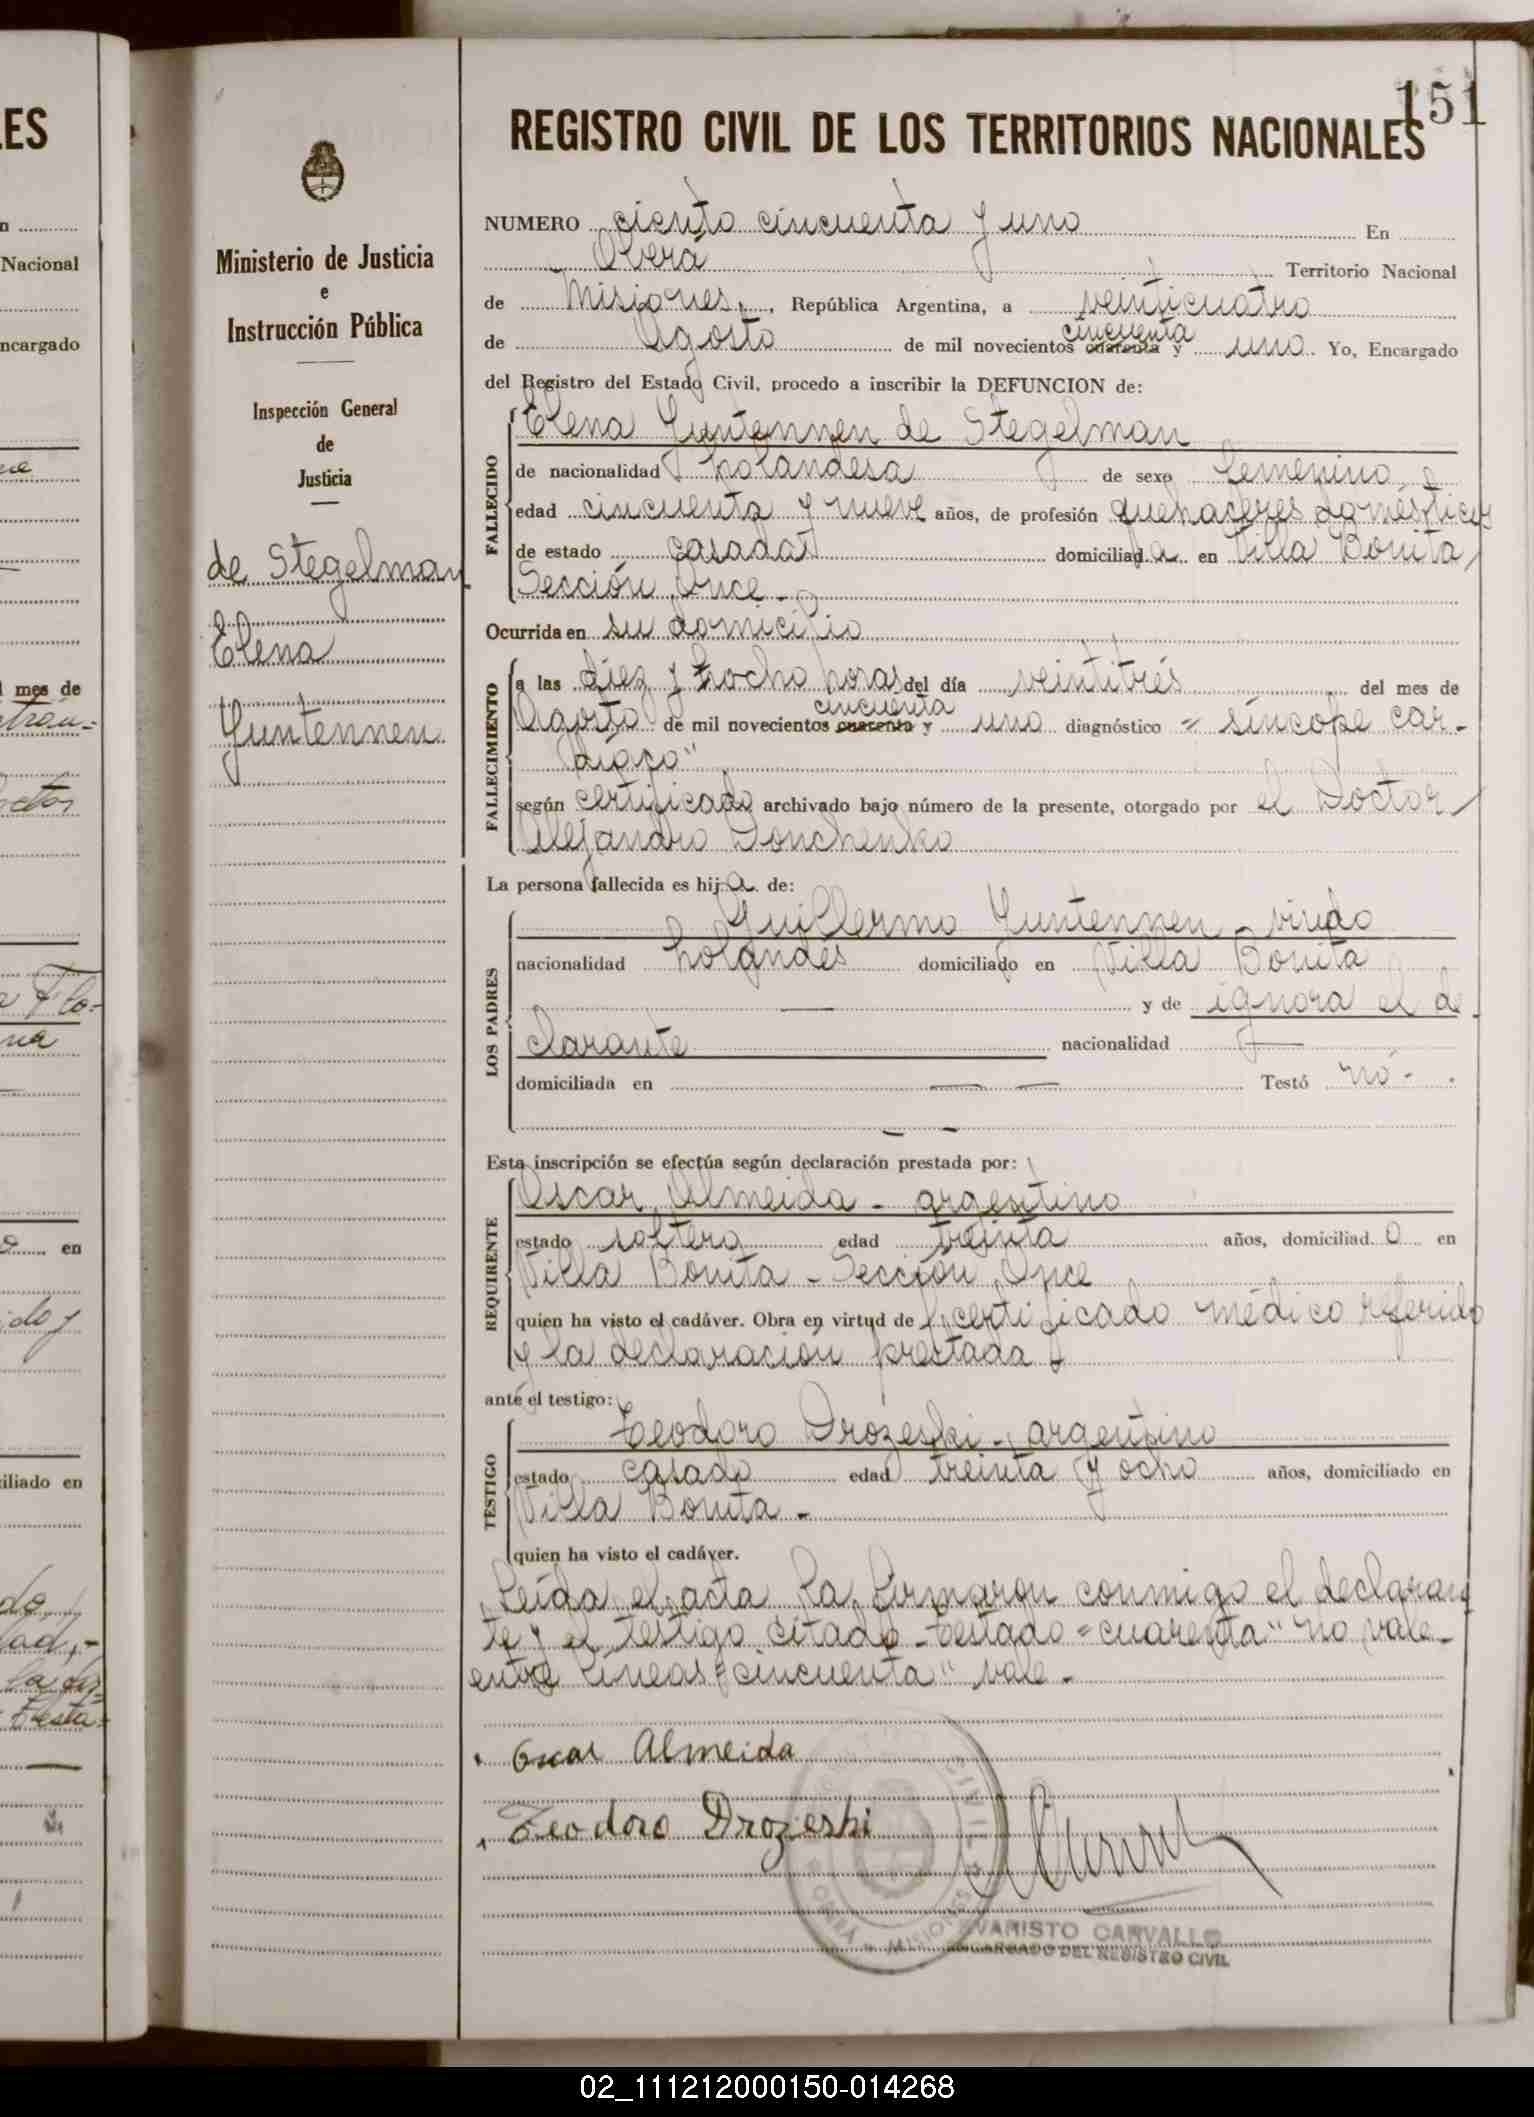 151
REGISTRO CIVIL DE LOS TERRITORIOS NACIONALES
Ministerio de Justicia
e
Instrucción Pública
Inspección General
de
Justicia
de Stegelman
Elena
Yuntennen
NUMERO ciento cincuenta y uno En
Oberá Territorio Nacional
de Misiones, República Argentina, a veinticuatro
cincuenta
de Agosto de mil novecientos cuarenta y uno Yo, Encargado
del Registro del Estado Civil, procedo a inscribir la DEFUNCION de:
FALLECIDO
Elena Yuntennen de Stegelman
de nacionalidad holandesa de sexo femenino
edad cincuenta y nueve años, de profesión quehaceres domésticos
de estado casada domiciliad a en Villa Bonita
Sección Once -
Ocurrida en su domicilio
FALLECIMIENTO
a las diez y hocho horas del día veintitrés del mes de
cincuenta
Agosto de mil novecientos cuarenta y uno diagnóstico "síncope car-
diaco"
según certificado archivado bajo número de la presente, otorgado por el Doctor
Alejandro Donchenko
La persona fallecida es hij a de:
LOS PADRES
Guillermo Yuntennen viudo
nacionalidad holandés domiciliado en Villa Bonita
— y de ignora el de
clarante nacionalidad —
domiciliada en — — Testó no -
Esta inscripción se efectúa según declaración prestada por:
REQUIRENTE
Oscar Almeida - argentino
estado soltero edad treinta años, domiciliad o en
Villa Bonita - Sección Once
quien ha visto el cadáver. Obra en virtud de certificado médico referido
y la declaración prestada
ante el testigo:
TESTIGO
Teodoro Drozeski - argentino
estado casado edad treinta y ocho años, domiciliado en
Villa Bonita -
quien ha visto el cadáver.
Leída el acta la firmaron conmigo el declaran
te y el testigo citado - testado "cuarenta" no vale -
entre líneas "cincuenta" vale -
Oscar Almeida
Teodoro Drozeski
EVARISTO CARVALLO
ENCARGADO DEL REGISTRO CIVIL
02_111212000150-014268